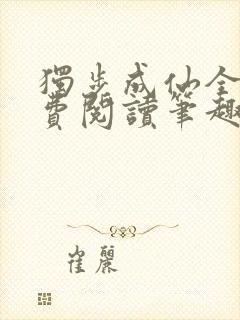 獨步成仙全
費閱讀筆趣
崔麗